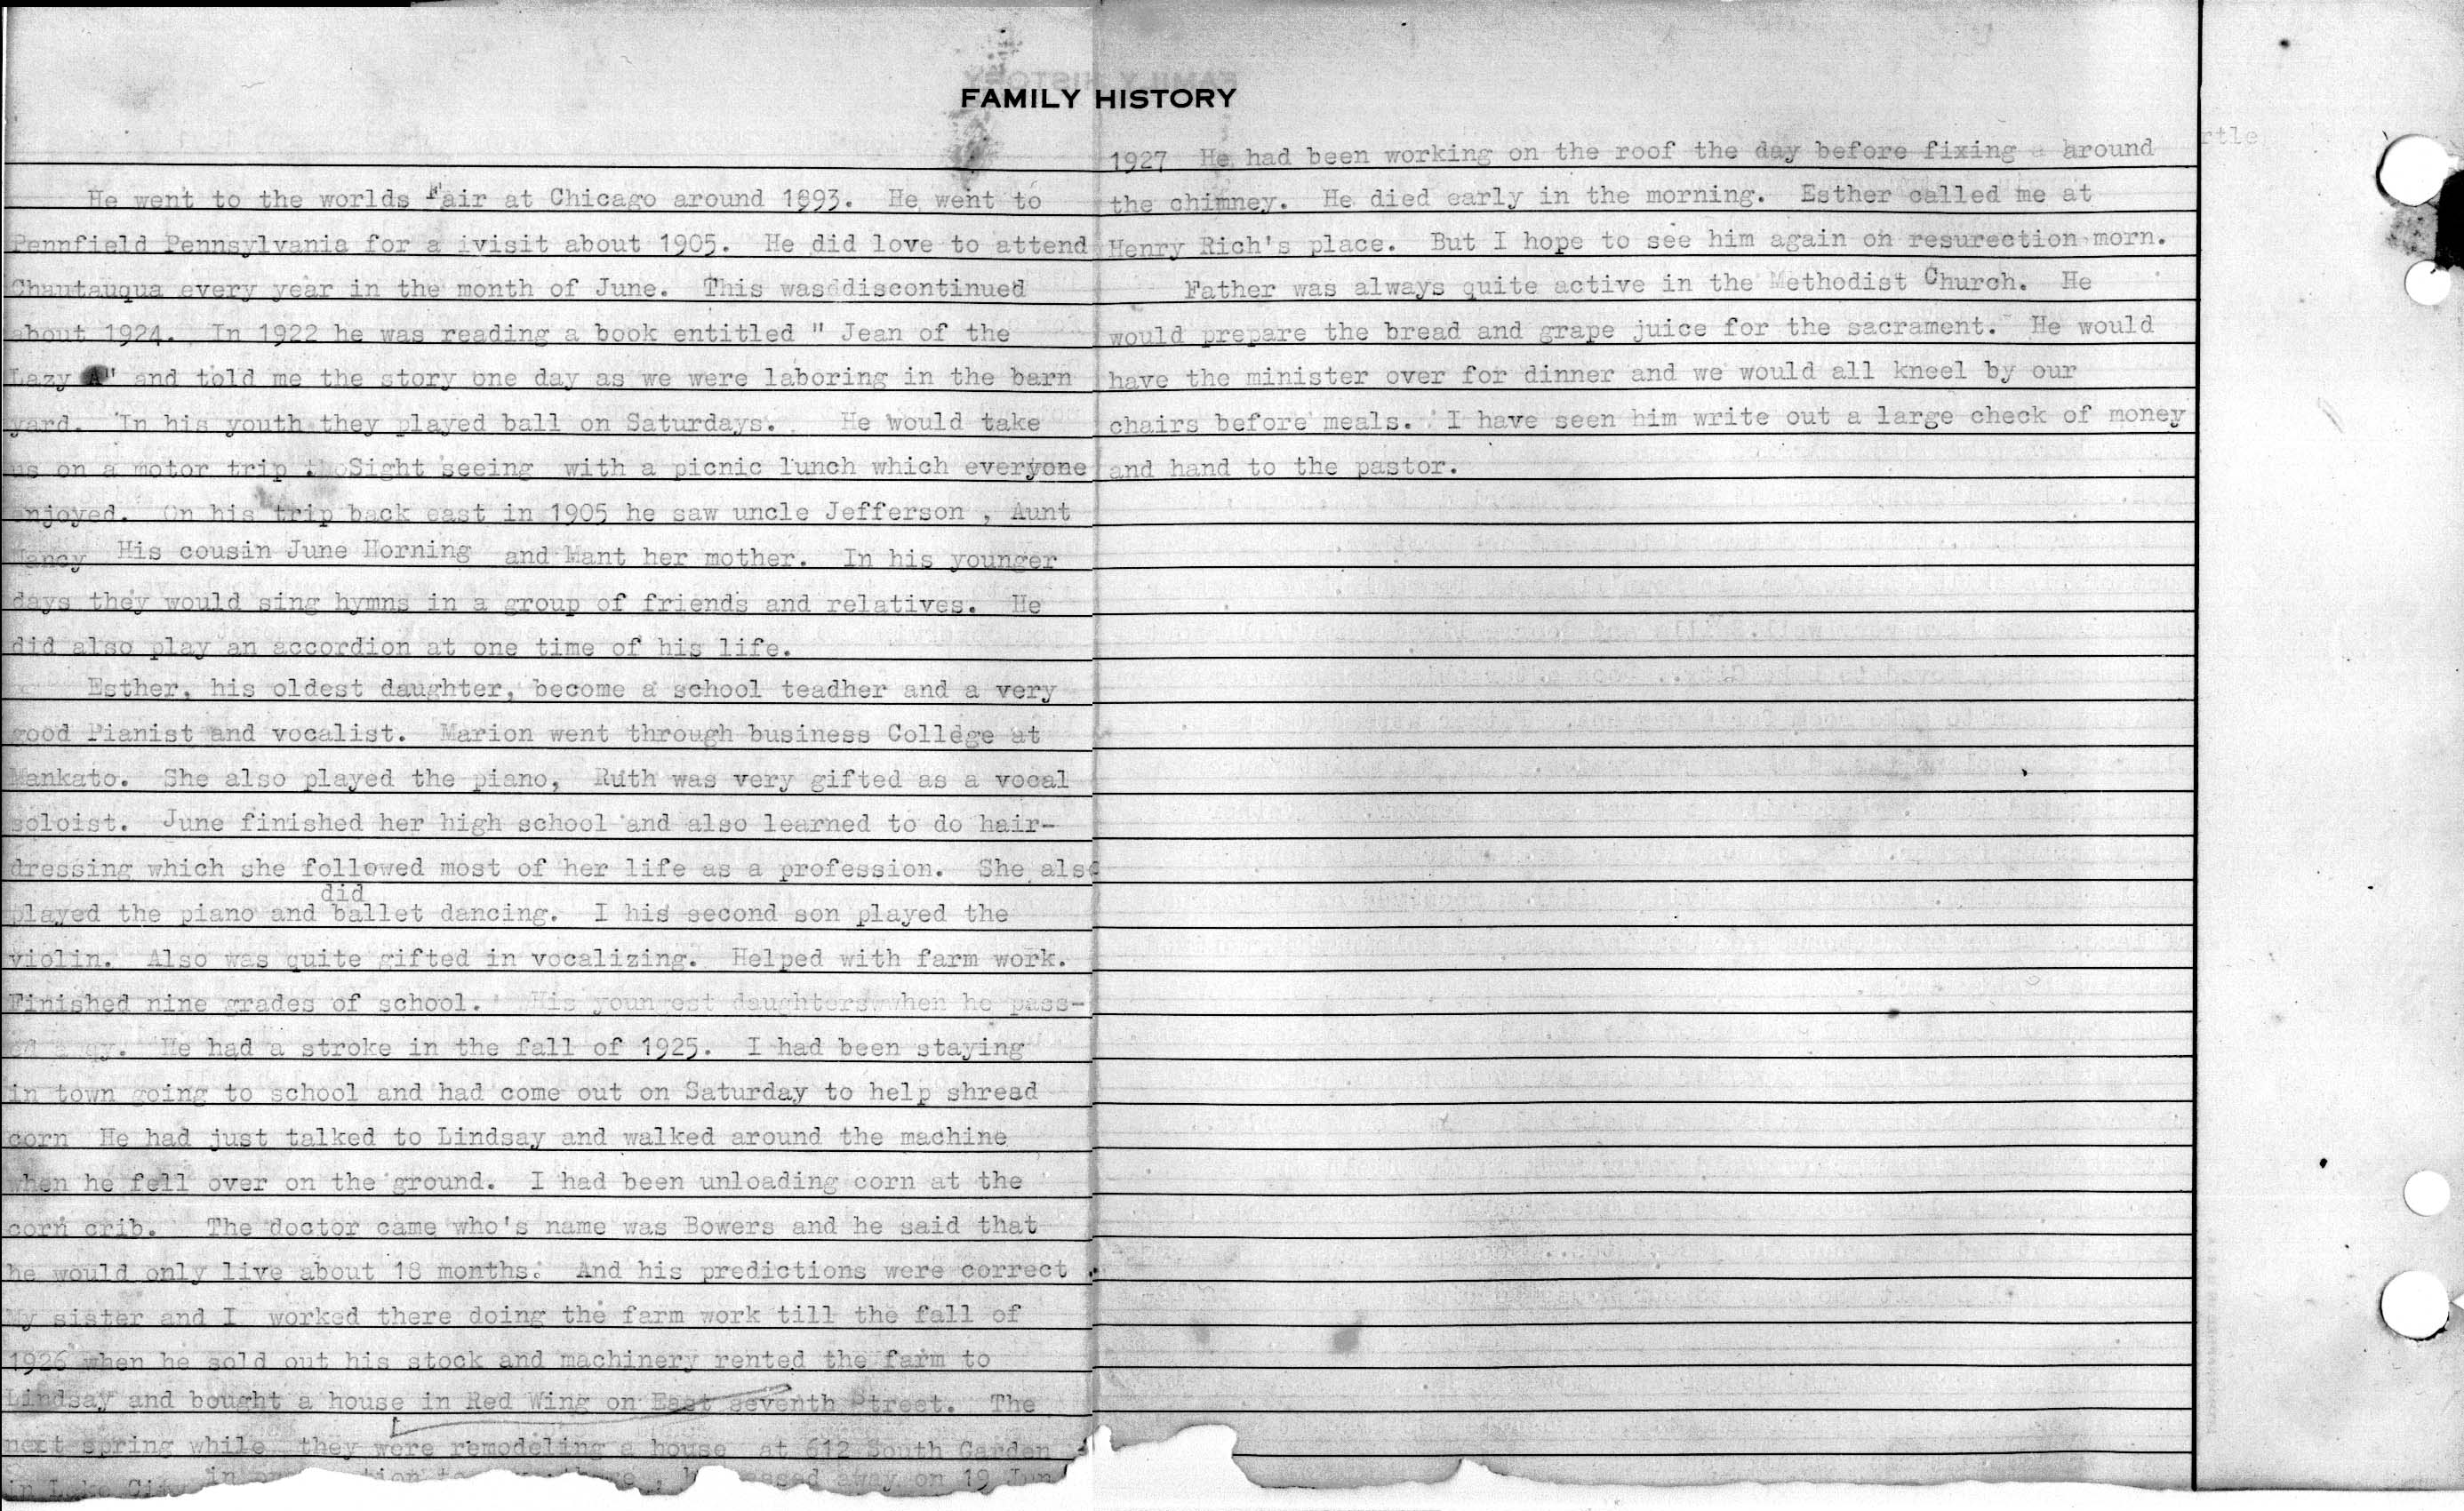 FAMILY HISTORY
He went to the worlds Fair at Chicago around 1893. He went to
Pennfield Pennsylvania for a ivisit about 1905. He did love to attend
Chautauqua every year in the month of June. This wasddiscontinued
about 1924. In 1922 he was reading a book entitled " Jean of the
Lazy A" and told me the story one day as we were laboring in the barn
yard. In his youth they played ball on Saturdays. He would take
us on a motor trip Sight seeing with a picnic lunch which everyone
enjoyed. On his trip back east in 1905 he saw uncle Jefferson , Aunt
Nancy His cousin June Horning and Mant her mother. In his younger
days they would sing hymns in a group of friends and relatives. He
did also play an accordion at one time of his life.
Esther, his oldest daughter, become a school teadher and a very
good Pianist and vocalist. Marion went through business College at
Mankato. She also played the piano, Ruth was very gifted as a vocal
soloist. June finished her high school and also learned to do hair-
dressing which she followed most of her life as a profession. She also
did
played the piano and ballet dancing. I his second son played the
violin. Also was quite gifted in vocalizing. Helped with farm work.
Finished nine grades of school. His youngest daughters when he pass-
ed away. He had a stroke in the fall of 1925. I had been staying
in town going to school and had come out on Saturday to help shread
corn He had just talked to Lindsay and walked around the machine
when he fell over on the ground. I had been unloading corn at the
corn crib. The doctor came who's name was Bowers and he said that
he would only live about 18 months. And his predictions were correct .
My sister and I worked there doing the farm work till the fall of
1926 when he sold out his stock and machinery rented the farm to
Lindsay and bought a house in Red Wing on East seventh Street. The
next spring while they were remodeling a house at 612 South Garden
in Lake City away on 19 Jun
1927 He had been working on the roof the day before fixing around
the chimney. He died early in the morning. Esther called me at
Henry Rich's place. But I hope to see him again on resurection morn.
Father was always quite active in the Methodist Church. He
would prepare the bread and grape juice for the sacrament. He would
have the minister over for dinner and we would all kneel by our
chairs before meals. I have seen him write out a large check of money
and hand to the pastor.
rtle